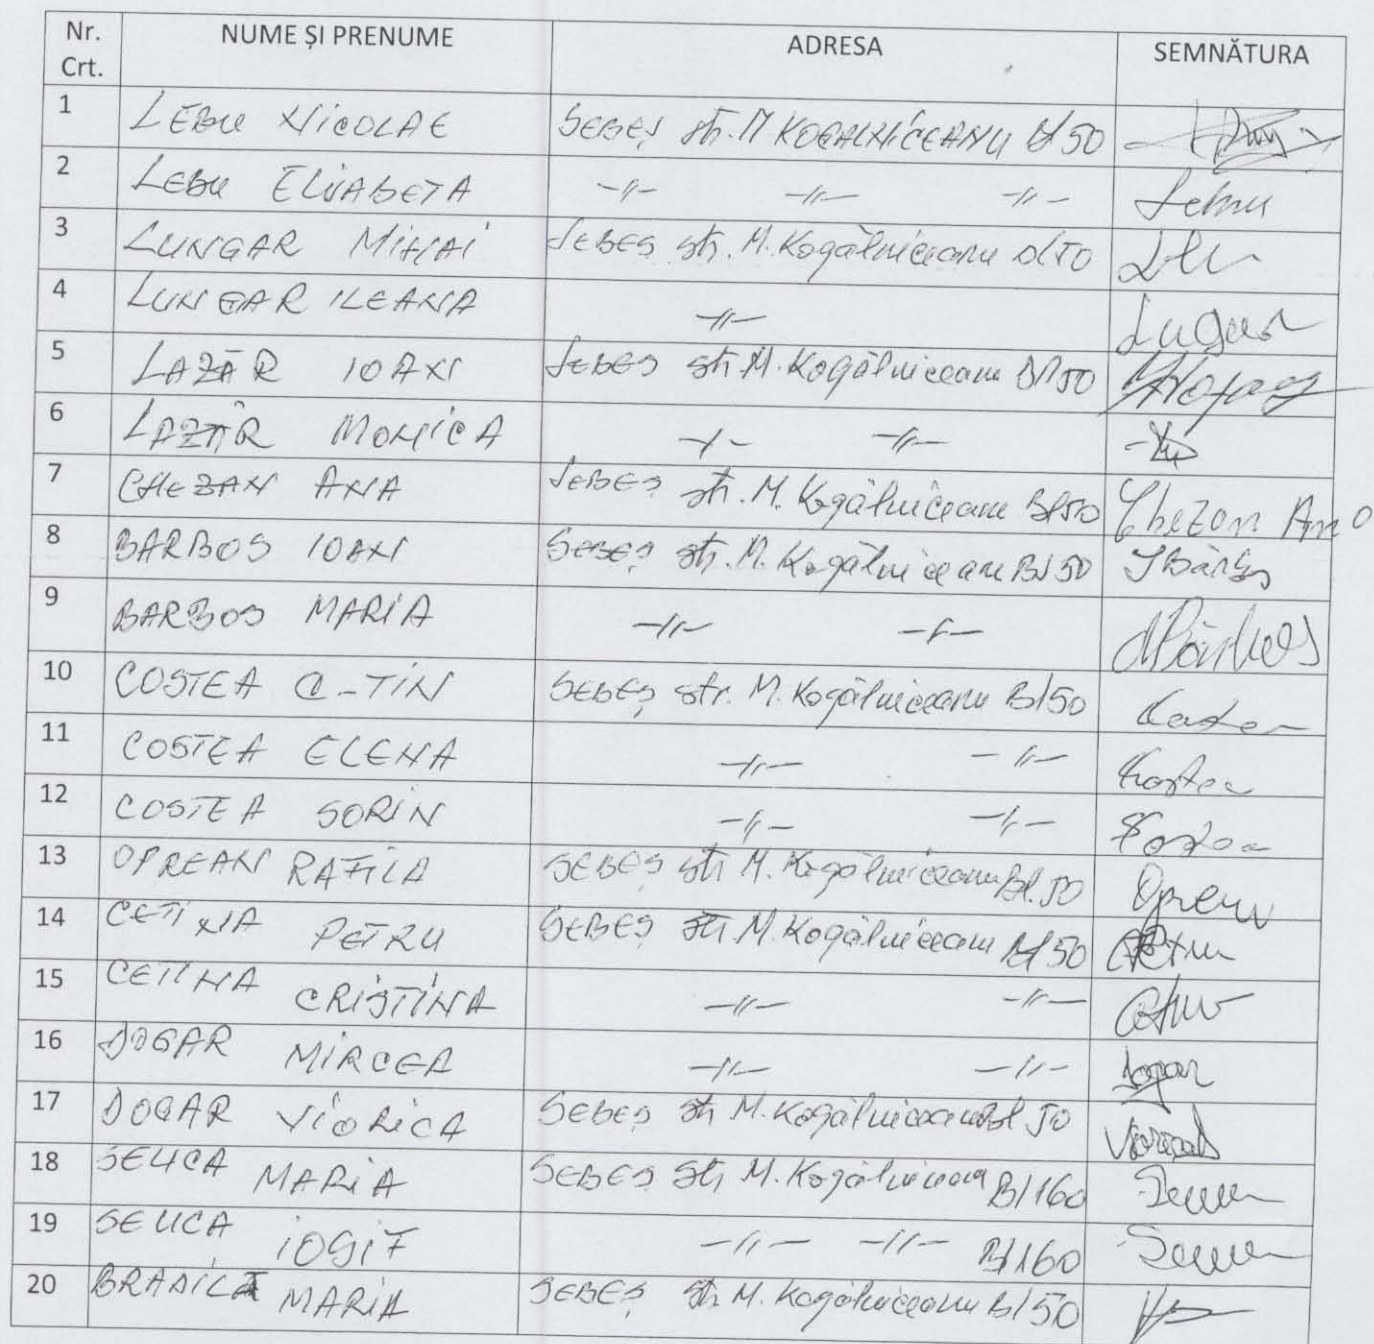 Nr. Crt. NUME ȘI PRENUME ADRESA SEMNĂTURA
1 LEBU NICOLAE SEBEȘ str. M KOGALNICEANU Bl 50
2 LEBU ELISABETA -//- -//- -//- Lebu
3 LUNGAR MIHAI SEBEȘ str. M. Kogălniceanu Bl 50
4 LUNGAR ILEANA -//-
5 LAZĂR IOAN SEBEȘ str M. Kogălniceanu Bl 50
6 LAZĂR MONICA -//- -//-
7 CHEZAN ANA SEBEȘ str. M. Kogălniceanu Bl 50 Chezan Ana
8 BARBOS IOAN SEBEȘ str. M. Kogălniceanu Bl 50
9 BARBOS MARIA -//- -//-
10 COSTEA C-TIN SEBEȘ str. M. Kogălniceanu Bl 50
11 COSTEA ELENA -//- -//- Costea
12 COSTEA SORIN -//- -//- Costea
13 OPREAN RAFILA SEBEȘ str M. Kogălniceanu Bl. 50
14 CETINA PETRU SEBEȘ str M. Kogălniceanu Bl 50
15 CETINA CRISTINA -//- -//-
16 DOGAR MIRCEA -//- -//- Dogar
17 DOGAR VIORICA SEBEȘ str M. Kogălniceanu Bl 50
18 SEUCA MARIA SEBEȘ str M. Kogălniceanu Bl 160
19 SEUCA IOSIF -//- -//- Bl 160
20 BRADILĂ MARIA SEBEȘ str M. Kogălniceanu Bl 50